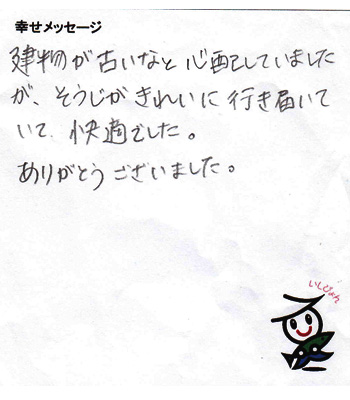 幸せメッセージ
建物が古いなと心配していました
が、そうじがきれいに行き届いて
いて、快適でした。
ありがとうございました。
いしぴょん